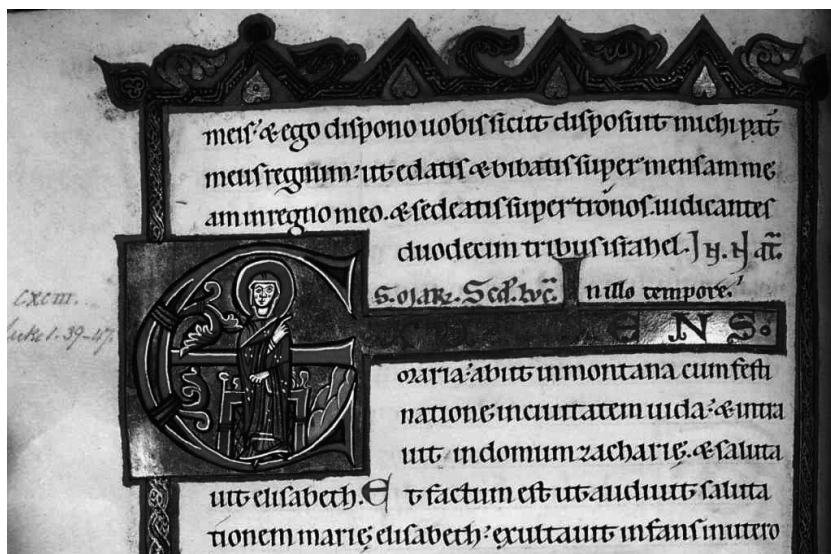 meis. & ego dispono uobis sicut disposuit michi pat̄
meus regnum. ut edatis & bibatis super mensam me
am in regno meo. & sedeatis super tronos. iudicantes
duodecim tribus israhel.
S. MAR. Scd. luc. In illo tempore.
E ENS.
cxciii.
Luke 1. 39-47.
maria. abiit in montana cum festi
natione in ciuitatem iuda. & intra
uit in domum zacharię. & saluta
uit elisabeth. Et factum est ut audiuit saluta
tionem marię elisabeth. exultauit infans in utero